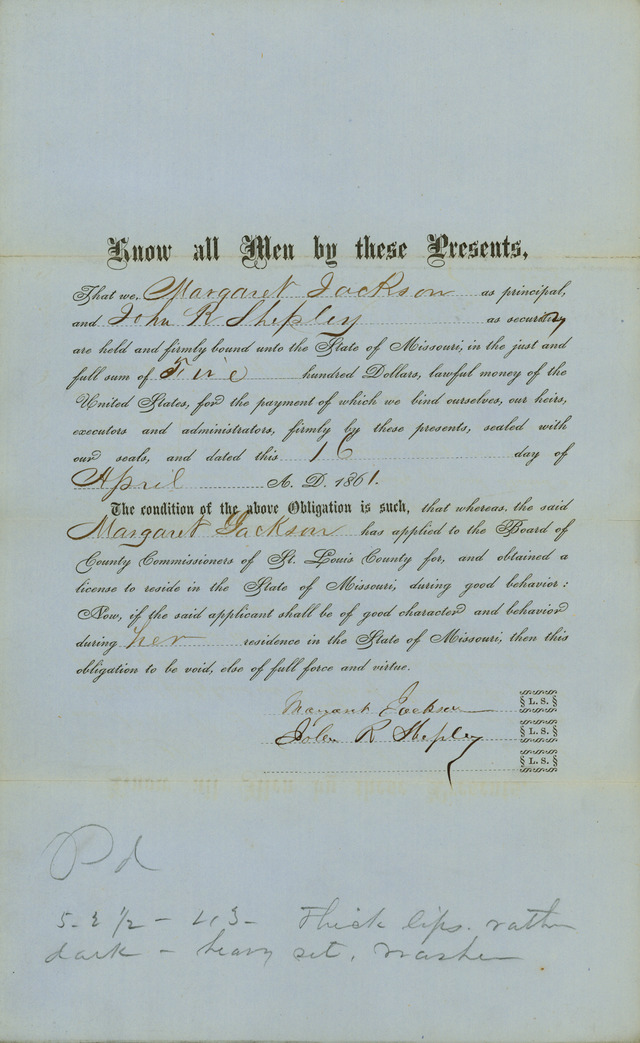 Know all Men by these Presents,
That we, Margaret Jackson as principal,
and John R Shepley as security
are held and firmly bound unto the State of Missouri, in the just and
full sum of Five hundred Dollars, lawful money of the
United States, for the payment of which we bind ourselves, our heirs,
executors and administrators, firmly by these presents, sealed with
our seals, and dated this 16 day of
April A. D. 1861.
The condition of the above Obligation is such, that whereas, the said
Margaret Jackson has applied to the Board of
County Commissioners of St. Louis County for, and obtained a
license to reside in the State of Missouri, during good behavior:
Now, if the said applicant shall be of good character and behavior
during her residence in the State of Missouri, then this
obligation to be void, else of full force and virtue.
Margaret Jackson § L. S. §
John R Shepley § L. S. §
§ L. S. §
Pd
5-2 1/2 - 43- Thick lips. rather
dark - heavy set, washer